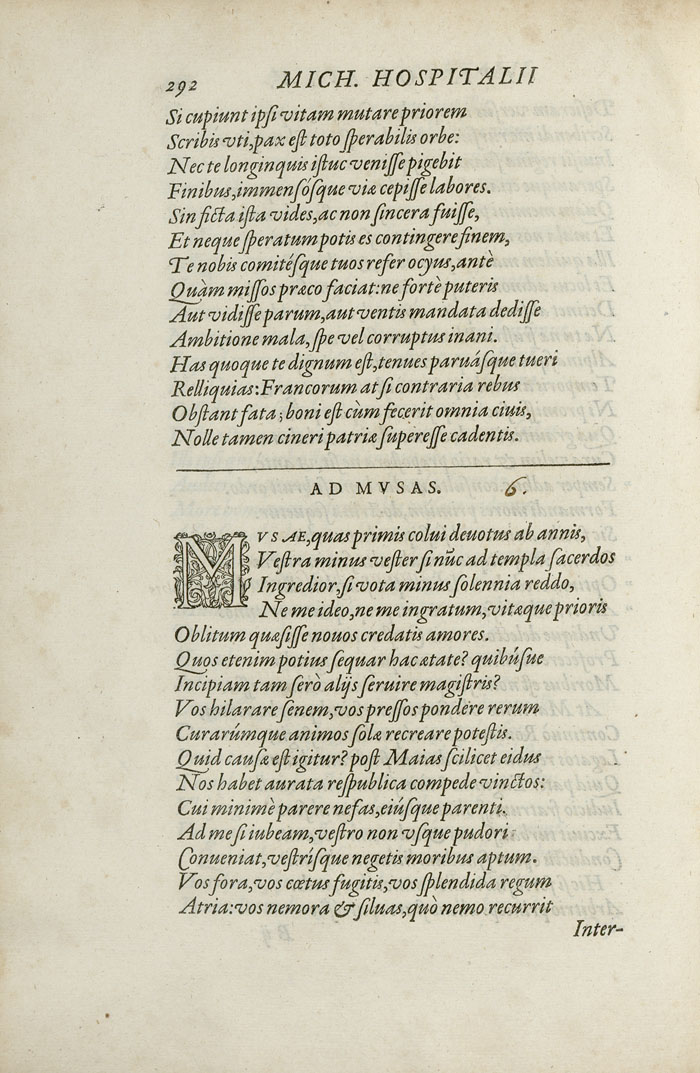 292 MICH. HOSPITALII
Si cupiunt ipſi vitam mutare priorem
Scribis vti, pax eſt toto ſperabilis orbe:
Nec te longinquis iſtuc veniſſe pigebit
Finibus, immenſóſque viæ cepiſſe labores.
Sin ficta iſta vides, ac non ſincera fuiſſe,
Et neque ſperatum potis es contingere finem,
Te nobis comitéſque tuos refer ocyus, antè
Quàm miſſos præco faciat: ne fortè puteris
Aut vidiſſe parum, aut ventis mandata dediſſe
Ambitione mala, ſpe vel corruptus inani.
Has quoque te dignum eſt, tenues paruáſque tueri
Relliquias: Francorum at ſi contraria rebus
Obſtant fata; boni eſt cùm fecerit omnia ciuis,
Nolle tamen cineri patriæ ſupereſſe cadentis.
AD MVSAS. 6.
MVSAE, quas primis colui deuotus ab annis,
Veſtra minus veſter ſi nũc ad templa ſacerdos
Ingredior, ſi vota minus ſolennia reddo,
Ne me ideo, ne me ingratum, vitæque prioris
Oblitum quæſiſſe nouos credatis amores.
Quos etenim potius ſequar hac ætate? quibúſue
Incipiam tam ſerò alijs ſeruire magiſtris?
Vos hilarare ſenem, vos preſſos pondere rerum
Curarúmque animos ſolæ recreare poteſtis.
Quid cauſæ eſt igitur? poſt Maias ſcilicet eidus
Nos habet aurata reſpublica compede vinctos:
Cui minimè parere nefas, eiúſque parenti.
Ad me ſi iubeam, veſtro non vſque pudori
Conueniat, veſtríſque negetis moribus aptum.
Vos fora, vos cœtus fugitis, vos ſplendida regum
Atria: vos nemora & ſiluas, quò nemo recurrit
Inter-